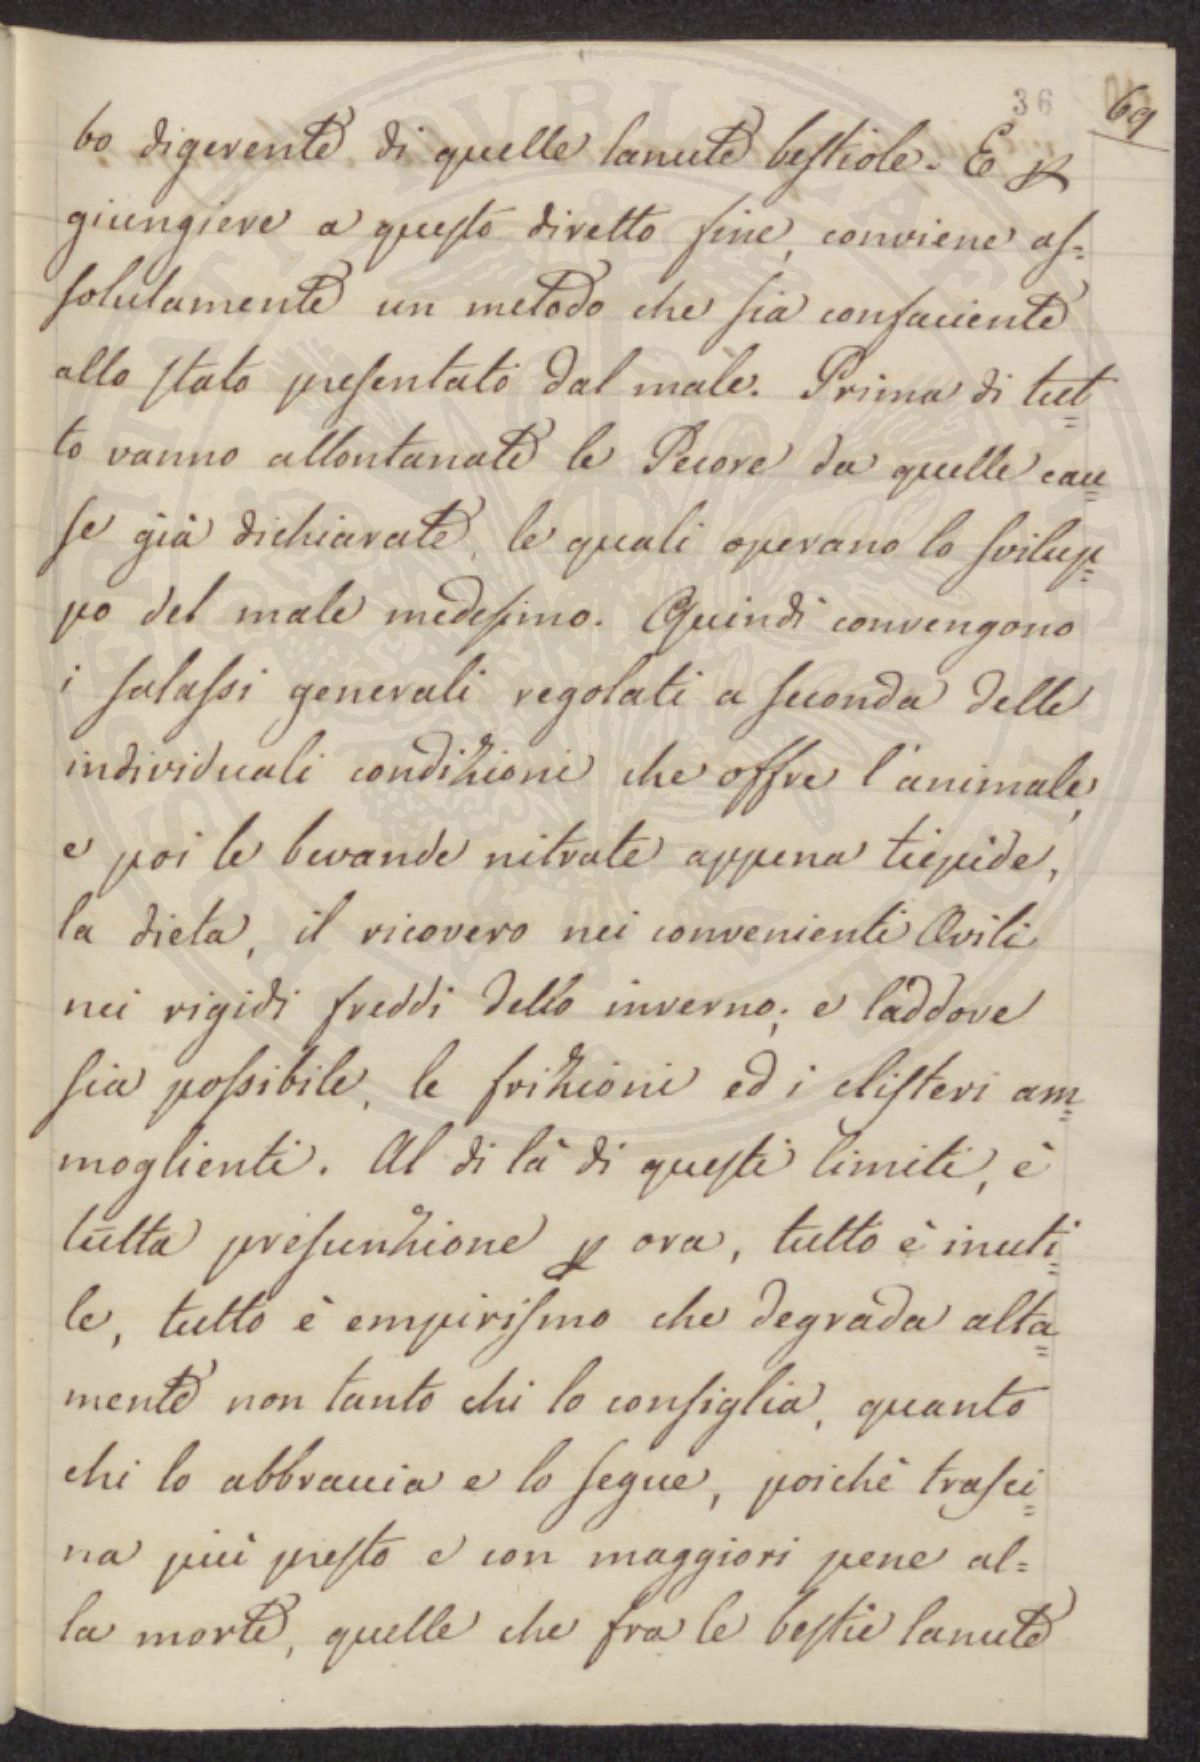 36 69
bo digerente di quelle lanute bestiole. E p
giungiere a questo diretto fine, conviene as=
solutamente un metodo che sia confaciente
allo stato presentato dal male. Prima di tut=
to vanno allontanate le Pecore da quelle cau=
se già dichiarate, le quali operano lo svilup=
po del male medesimo. Quindi convengono
i salassi generali regolati a seconda delle
individuali condizioni che offre l'animale,
e poi le bevande nitrate appena tiepide,
la dieta, il ricovero nei convenienti Ovili
nei rigidi freddi dello inverno; e laddove
sia possibile, le frizioni ed i clisteri am=
moglienti. Al di là di questi limiti, è
tutta presunzione p ora, tutto è inuti=
le, tutto è empirismo che degrada alta=
mente non tanto chi lo consiglia, quanto
chi lo abbraccia e lo segue, poichè trasci=
na più presto e con maggiori pene al=
la morte, quelle che fra le bestie lanute